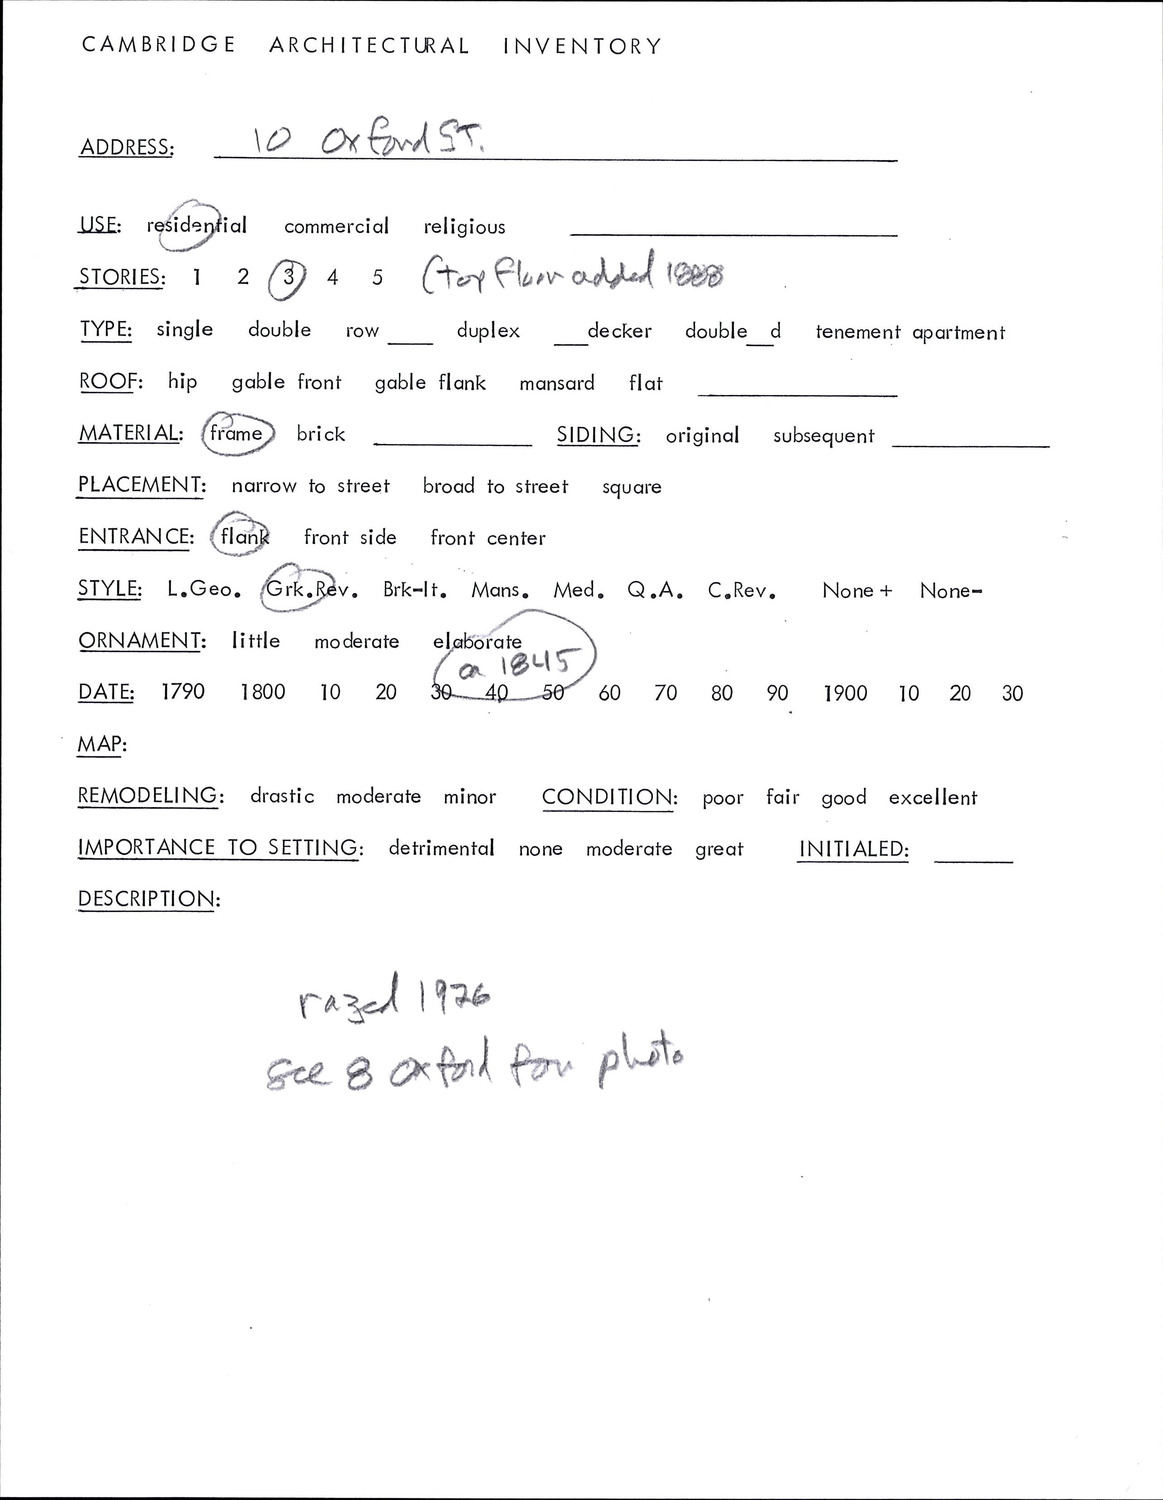 CAMBRIDGE ARCHITECTURAL INVENTORY
ADDRESS: 10 Oxford ST.
USE: residential commercial religious
STORIES: 1 2 3 4 5 (top floor added 1888
TYPE: single double row ____ duplex ___decker double__d tenement apartment
ROOF: hip gable front gable flank mansard flat
MATERIAL: frame brick SIDING: original subsequent
PLACEMENT: narrow to street broad to street square
ENTRANCE: flank front side front center
STYLE: L.Geo. Grk.Rev. Brk-It. Mans. Med. Q.A. C.Rev. None + None-
ORNAMENT: little moderate elaborate
ca 1845
DATE: 1790 1800 10 20 30 40 50 60 70 80 90 1900 10 20 30
MAP:
REMODELING: drastic moderate minor CONDITION: poor fair good excellent
IMPORTANCE TO SETTING: detrimental none moderate great INITIALED:
DESCRIPTION:
razed 1976
see 8 Oxford for photo